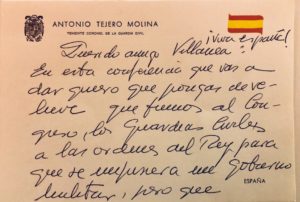 ANTONIO TEJERO MOLINA
TENIENTE CORONEL DE LA GUARDIA CIVIL
¡Viva España!
Querido amigo Villanea:
En esta conferencia que vas a
dar quiero que pongas de re-
lieve que fuimos al Con-
greso, los Guardias Civiles
a las ordenes del Rey para
que se impusiera un gobierno
militar, pero que
ESPAÑA